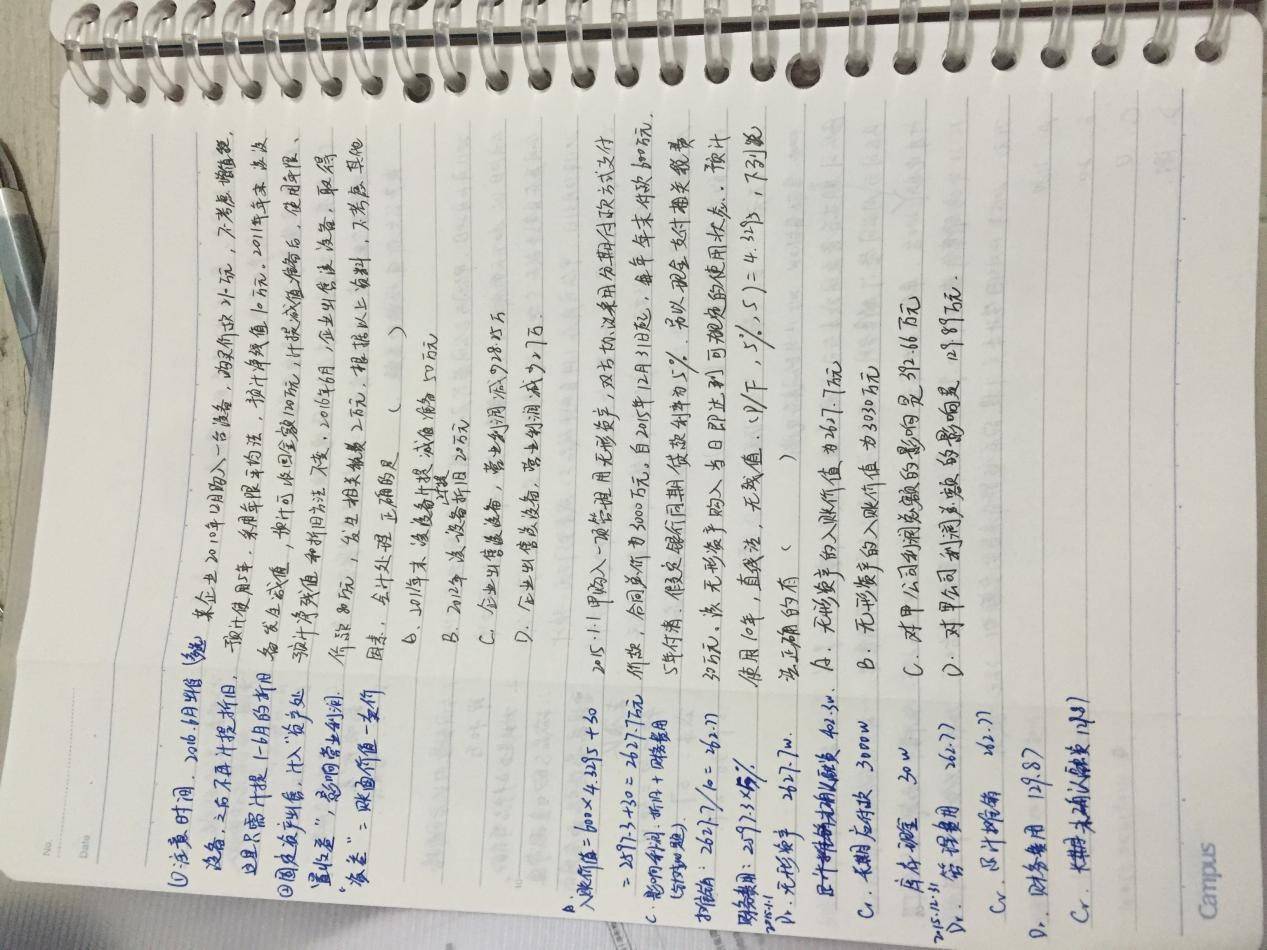 No.
Date
(多选) 某企业2010年12月购入一台设备，购买价款210万元，不考虑增值税，
预计使用5年，采用年限平均法，预计净残值10万元，2011年年末该设
备发生减值，预计可收回金额120万元，计提减值准备后，使用年限、
预计净残值和折旧方法不变。2016年6月，企业出售该设备，取得
价款80万元，发生相关税费2万元，根据以上资料，不考虑其他
因素，会计处理正确的是（ ）
A. 2011年末该设备计提减值准备50万元
B. 2012年该设备计提折旧20万元
C. 企业出售该设备，营业利润减少28.25万
D. 企业出售该设备，营业利润减少27万.
2015.1.1甲购入一项管理用无形资产，双方协议采用分期付款方式支付
价款，合同总价为3000万元，自2015年12月31日起，每年年末付款600万元.
5年付清. 假定银行同期贷款利率为5%. 另以现金支付相关税费
30万元。该无形资产购入当日即达到可规定的使用状态. 预计
使用10年，直线法，无残值. (P/F, 5%, 5)=4.3295, 下列说
法正确的有（ ）
A. 无形资产的入账价值为2627.7万元
B. 无形资产的入账价值为3030万元
C. 对甲公司利润总额的影响是392.66万元
D. 对甲公司利润总额的影响是129.89万元.
①注意时间. 2016.6月出售
设备，之后不再计提折旧,
也即只需计提1-6月的折旧
②固定资产出售，计入"资产处
置收益"，影响营业利润.
"资差"=账面价值-卖价
A.
入账价值=600×4.3295+30
=2597.3+30=2627.7万元
C. 影响利润: 折旧+财务费用
摊销: 2627.7/10=262.77
财务费用: 2597.3×5%
2015.1.1
Dr. 无形资产 2627.7w.
未确认融资 402.3w.
Cr. 长期应付款 3000w
库存现金 30w
2015.12.31
Dr. 管理费用 262.77
Cr. 累计摊销 262.77
D. 财务费用 129.87
Cr. 未确认融资 129.87
Campus